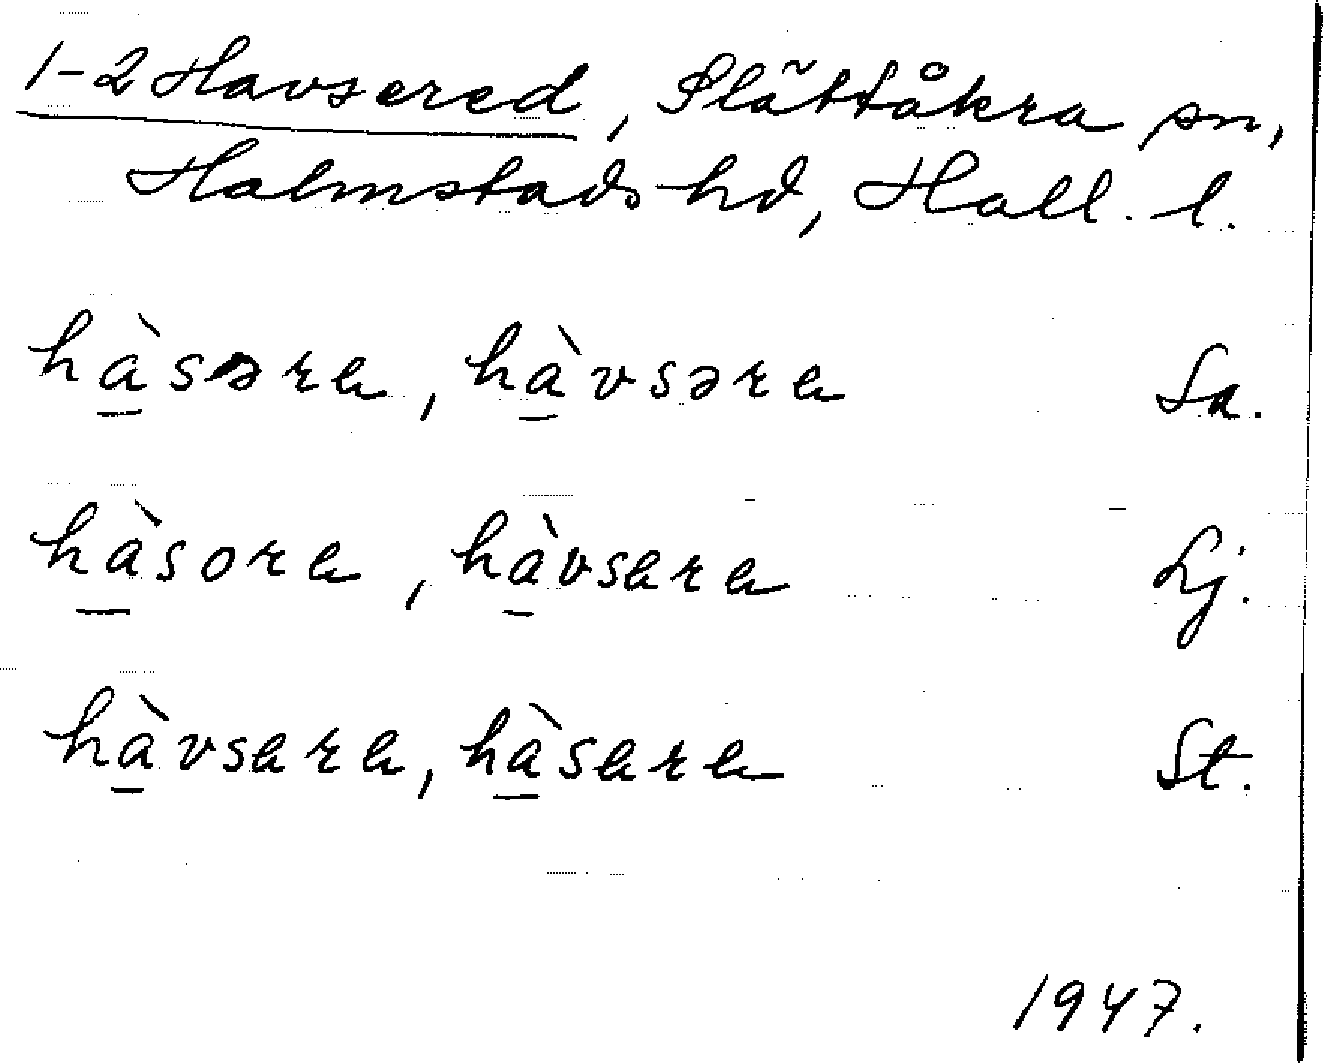 1-2 Havsered, Slättåkra sn,
Halmstads hd, Hall. l.
hàsəra, hàvsəra Sa.
hàsora, hàvsara Lj.
hàvsara, hàsara St.
1947.